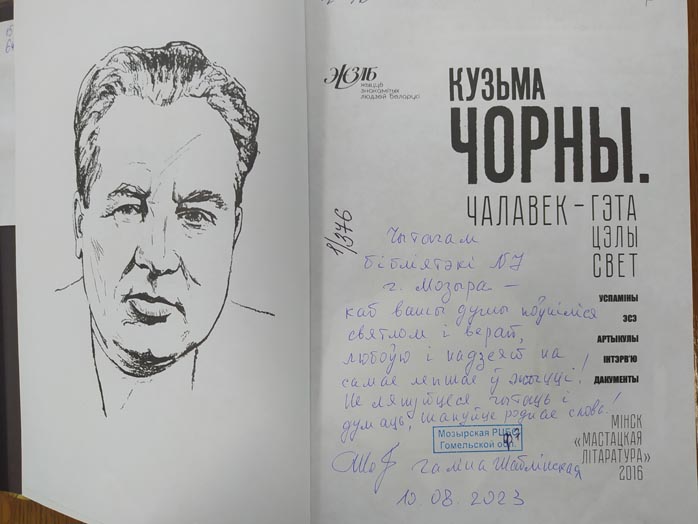 ЖЗЛБ
жыццё
знакамітых
людзей Беларусі
КУЗЬМА
ЧОРНЫ.
ЧАЛАВЕК – ГЭТА
ЦЭЛЫ
СВЕТ
УСПАМІНЫ
ЭСЭ
АРТЫКУЛЫ
ІНТЭРВ'Ю
ДАКУМЕНТЫ
МІНСК
«МАСТАЦКАЯ
ЛІТАРАТУРА»
2016
1/376
Чытачам
бібліятэкі №7
г. Мозыра –
каб вашы душы поўніліся
святлом і верай,
любоўю і надзеяй на
самае лепшае ў жыцці!
Не лянуйцеся чытаць і
думаць, шануйце роднае слова!
Мозырская РЦБС
Гомельской обл.
Галіна Шаблінская
10.08.2023